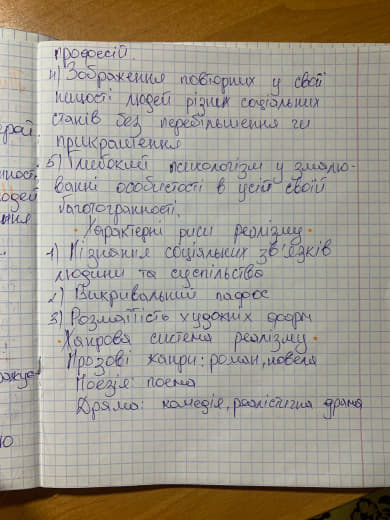 професій.
4) Зображення повторних у свої
ницості людей різних соціальних
станів без перебільшення чи
прикрашення
5) Глибокий психологізм у змалю-
ванні особистості в усій своїй
багатогранності.
• Характерні риси реалізму •
1) Пізнання соціальних зв'язків
людини та суспільства
2) Викривальний пафос
3) Розмаїтість художніх форм
• Жанрова система реалізму •
Прозові жанри: роман, новела
Поезія: поема
Драма: комедія, реалістична драма